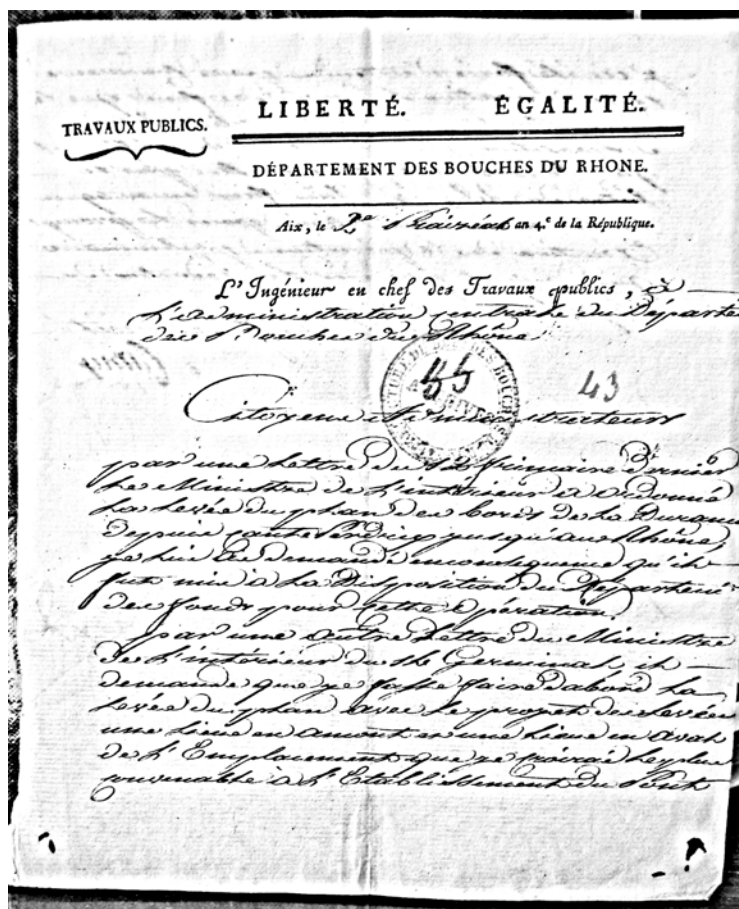 LIBERTÉ. ÉGALITÉ.
TRAVAUX PUBLICS.
DÉPARTEMENT DES BOUCHES DU RHONE.
Aix, le 2e Prairéal an 4.e de la République.
L'Ingénieur en chef des Travaux publics, à
L'administration centrale du Départe
des Bouches du Rhône
55 43
Citoyens Administrateurs
par une Lettre du frimaire Dernier
Le Ministre de L'intérieur a ordonné
La Levée du plan des bords de La Durance
Depuis jusqu'au Rhône,
je lui ai demandé en conséquence qu'il
fut mis à La Disposition du Départemt
des fonds pour cette opération.
par une autre Lettre du Ministre
De L'intérieur du 16 Germinal, il
demande que je fasse faire d'abord La
Levée du plan avec Le projet des Levées
une Lieue en amont et une Lieue en aval
de L'Emplacement que je croirai Le plus
convenable à L'Etablissement du Pont